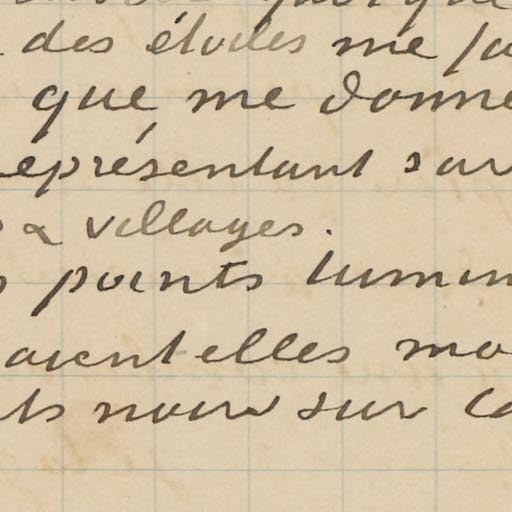 des étoiles me fa
que me donne
eprésentant sur
& villages.
points lumin
aient elles mo
ts noirs sur ca